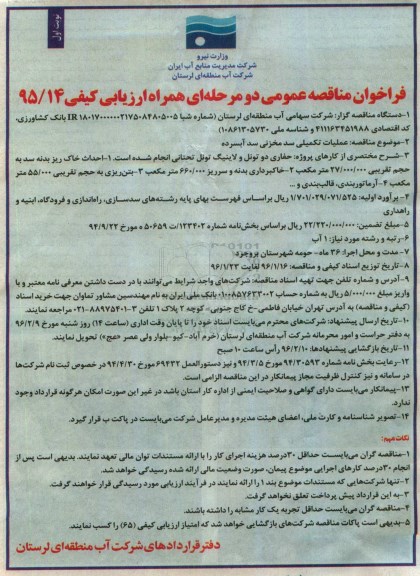 نوبت اول
وزارت نیرو
شرکت مدیریت منابع آب ایران
شرکت آب منطقه‌ای لرستان
فراخوان مناقصه عمومی دو مرحله‌ای همراه ارزیابی کیفی ۹۵/۱۴
۱-دستگاه مناقصه گزار: شرکت سهامی آب منطقه‌ای لرستان (شماره شبا IR ۱۸۰۱۷۰۰۰۰۰۰۲۱۷۵۰۸۴۸۰۵۰۰۵ بانک کشاورزی،
کد اقتصادی ۴۱۱۱۶۳۴۵۱۹۸۸ و شناسه ملی ۱۰۸۶۱۳۰۵۷۳۰)
۲-موضوع مناقصه: عملیات تکمیلی سد مخزنی سد آبسرده
۳-شرح مختصری از کارهای پروژه: حفاری دو تونل و لاینینگ تونل تحتانی انجام شده است. ۱-احداث خاک ریز بدنه سد به
حجم تقریبی ۲۷/۰۰۰/۰۰۰ متر مکعب ۲-خاکبرداری بدنه و سرریز ۶۶۰/۰۰۰ متر مکعب ۳-بتن‌ریزی به حجم تقریبی ۵۵/۰۰۰ متر
مکعب ۴-آرماتوربندی، قالب‌بندی و ...
۴-برآورد اولیه: ۱/۷۰۱/۰۲۹/۰۷۱/۵۲۵ ریال براساس فهرست بهای پایه رشته‌های سدسازی، راه‌اندازی و فرودگاه، ابنیه و
راهداری
۵-مبلغ تضمین: ۲۲/۲۲۰/۰۰۰/۰۰۰ ریال براساس بخش‌نامه شماره ۱۲۳۴۰۲/ت ۵۰۶۵۹ ه مورخ ۹۴/۹/۲۲
۶-رتبه و رشته مورد نیاز: ۱ آب
۷-مدت و محل اجرا: ۳۶ ماه- حومه شهرستان بروجرد
۸-تاریخ توزیع اسناد کیفی و مناقصه: ۹۶/۱/۱۶ لغایت ۹۶/۱/۲۳
۹-آدرس و شماره تلفن جهت تهیه اسناد مناقصه: شرکت‌های واجد شرایط می‌توانند با در دست داشتن معرفی نامه معتبر و یا
واریز مبلغ ۵/۰۰۰/۰۰۰ ریال به شماره حساب ۰۱۰۰۸۵۷۶۳۳۰۰۲ بانک ملی ایران به نام مهندسین مشاور تماوان جهت خرید اسناد
(کیفی و مناقصه) به آدرس تهران خیابان فاطمی-خ کاج جنوبی-کوچه ۲ پلاک ۱ تلفن ۳-۸۸۹۷۵۴۰۱-۰۲۱ مراجعه نمایند.
۱۰-تاریخ ارسال پیشنهاد: شرکت‌های محترم می‌بایست اسناد خود را تا پایان وقت اداری (ساعت ۱۴) روز شنبه مورخ ۹۶/۲/۹
به دفتر حراست و امور محرمانه شرکت آب منطقه‌ای لرستان (خرم آباد-کیو-بلوار ولی عصر «عج») تحویل نمایند.
۱۱-تاریخ بازگشایی پیشنهادها: ۹۶/۲/۱۰ رأس ساعت ۱۰ صبح
۱۲-رعایت بخش نامه شماره ۹۴/۳۰۵۹۳ مورخ ۹۴/۳/۵ و نیز دستورالعمل ۶۹۴۳۲ مورخ ۹۴/۴/۳۰ در خصوص ثبت نام شرکت‌ها
در سامانه و نیز کنترل ظرفیت مجاز پیمانکار در این مناقصه الزامی است.
۱۳-پیمانکار می‌بایست دارای گواهی و صلاحیت ایمنی از اداره کار استان باشد در غیر این صورت امکان هرگونه قرارداد وجود
ندارد.
۱۴-تصویر شناسنامه و کارت ملی، اعضای هیئت مدیره و مدیرعامل شرکت می‌بایست در پاکت ب قرار گیرد.
نکات مهم:
۱-مناقصه گران می‌بایست حداقل ۳۰ درصد هزینه اجرای کار را با ارائه مستندات توان مالی تعهد نمایند. بدیهی است پس از
انجام ۳۰ درصد کارهای اجرایی موضوع پیمان، صورت وضعیت مالی ارائه شده رسیدگی خواهد شد.
۲-تنها شرکت‌هایی که مستندات موضوع بند ۱ را ارائه نمایند در فرآیند ارزیابی مورد رسیدگی قرار خواهند گرفت.
۳-به این قرارداد پیش پرداخت تعلق نخواهد گرفت.
۴-مناقصه گران می‌بایست حداقل تجربه یک کار مشابه را داشته باشند.
۵-بدیهی است پاکات مناقصه شرکت‌های بازگشایی خواهد شد که امتیاز ارزیابی کیفی (۶۵) را کسب نمایند.
دفتر قراردادهای شرکت آب منطقه‌ای لرستان